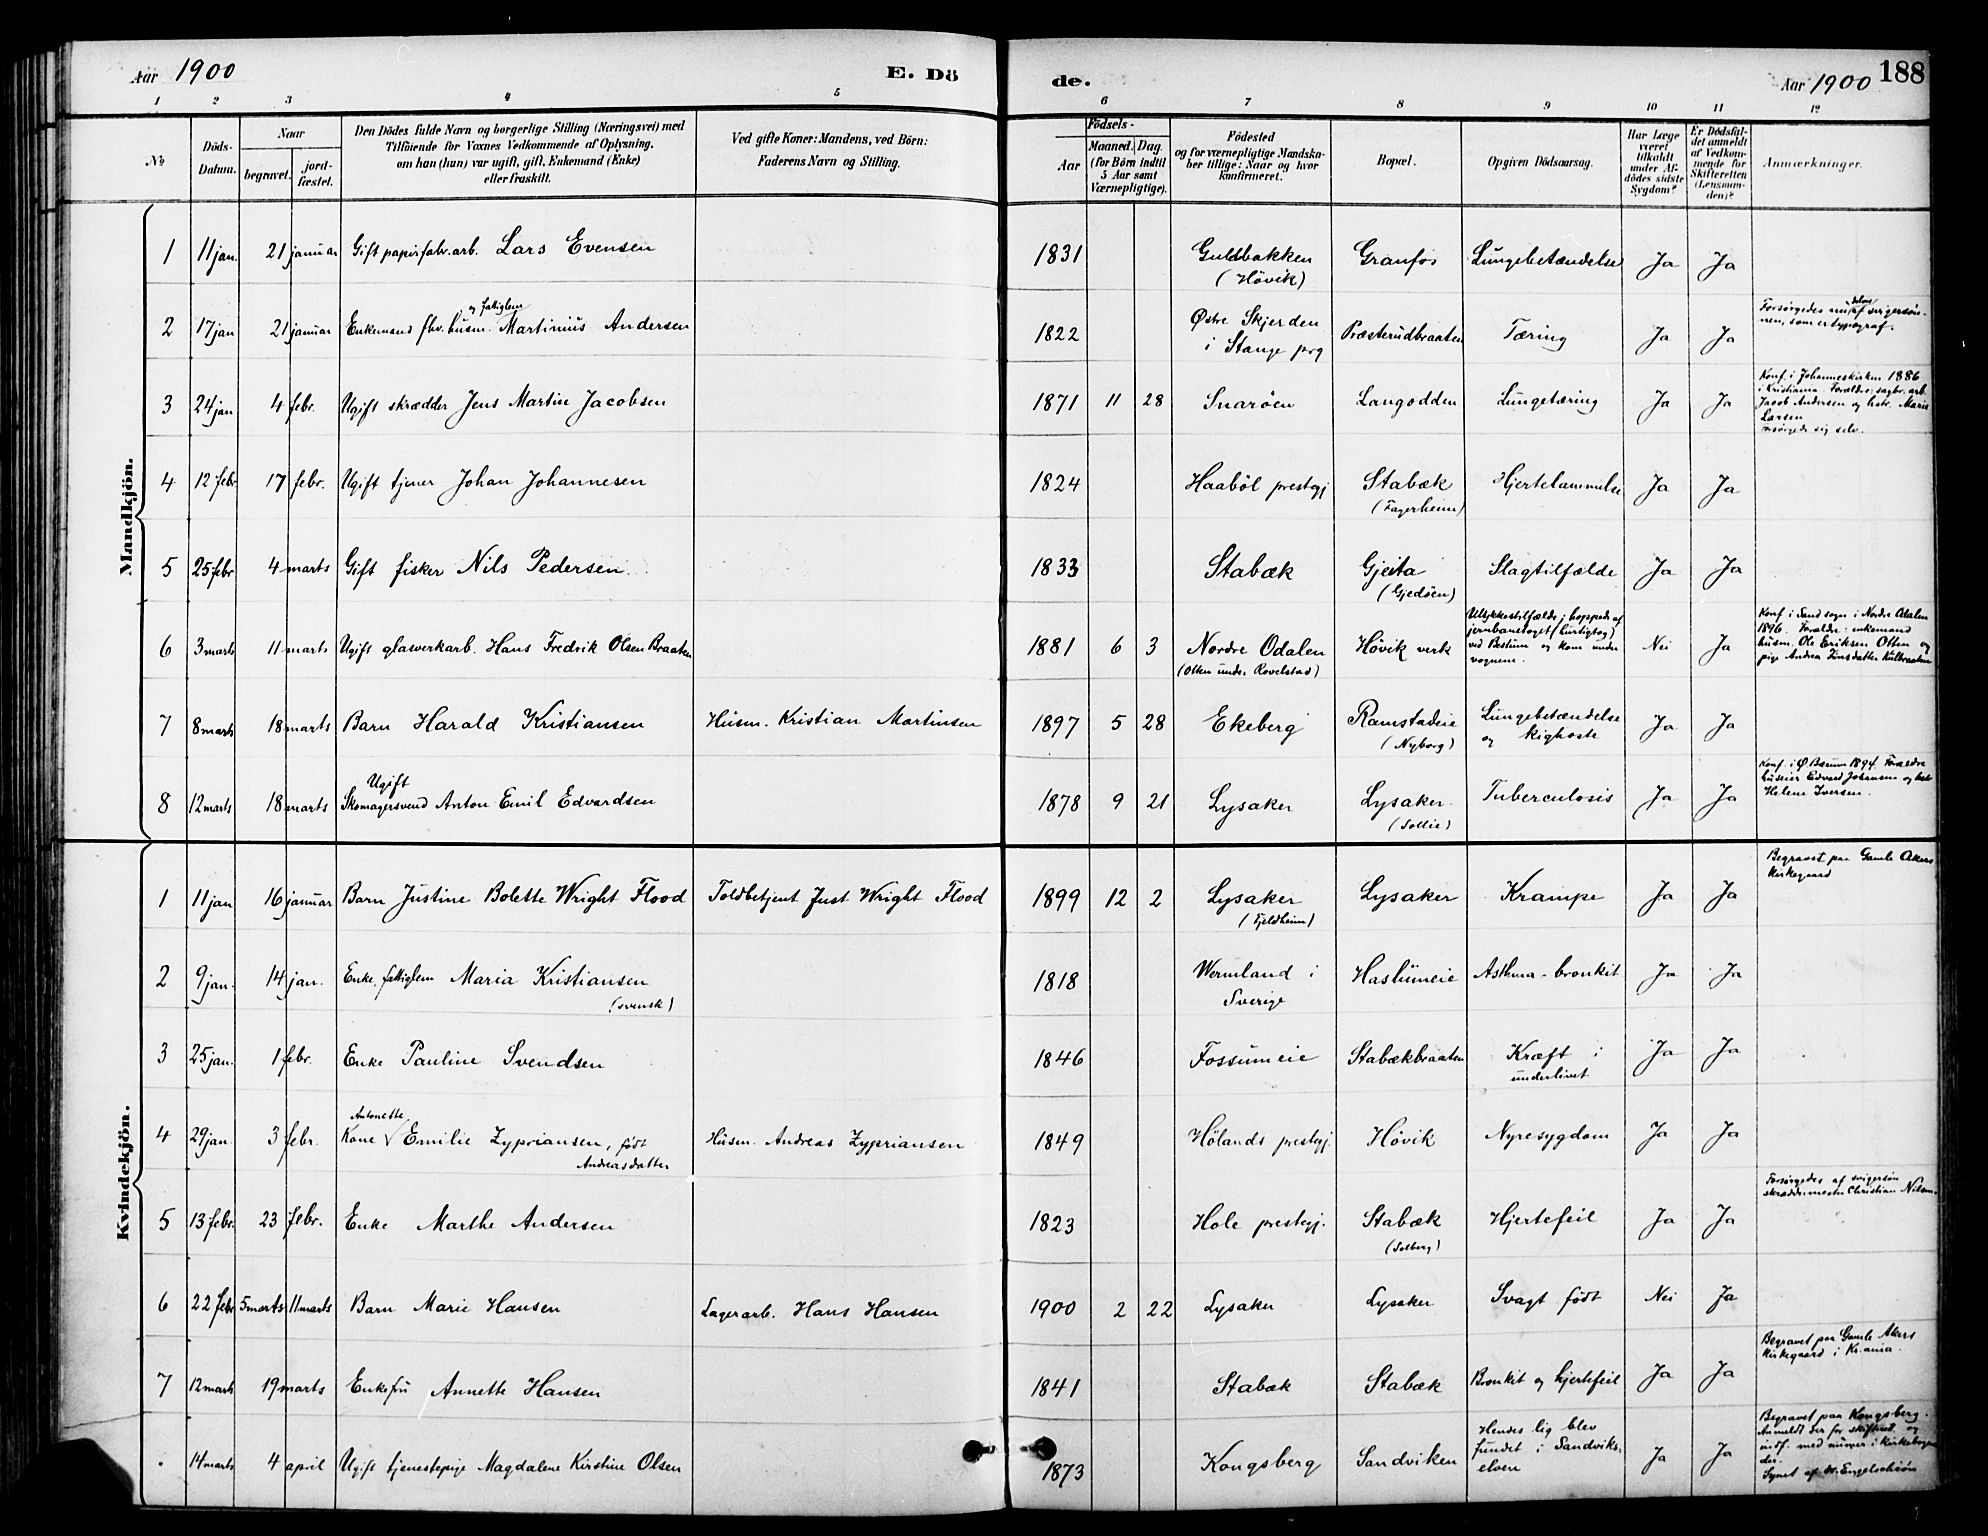 Aar 1900
E. Dö
de.
Aar 1900 188
1 2 3 4 5 6 7 8 9 10 11 12
No
Döds-Datum.
Naar
begravet.
jord-fæstet.
Den Dödes fulde Navn og borgerlige Stilling (Næringsvei) med
Tilföiende for Voxnes Vedkommende af Oplysning,
om han (hun) var ugift, gift, Enkemand (Enke)
eller fraskilt.
Ved gifte Koner: Mandens, ved Börn:
Faderens Navn og Stilling.
Födsels-
Aar
Maaned. Dag.
(for Börn indtil
5 Aar samt
Værnepligtige).
Födested
og for værnepligtige Mandska-
ber tillige: Naar og hvor
konfirmeret.
Bopæl.
Opgiven Dödsaarsag.
Har Læge
været
tilkaldt
under Af-
dödes sidste
Sygdom?
Er Dödsfal-
det anmeldt
af Vedkom-
mende for
Skifteretten
(Lensman-
den)?
Anmærkninger.
Mandkjön.
1 11 jan. 21 januar Gift papirfabr.arb. Lars Evensen 1831 Guldbakken (Hövik) Granfos Lungebetændelse Ja Ja
2 17 jan 21 januar Enkemand fhv. husm. og fattiglem Martinius Andersen 1822 Østre Skjerden i Stange prg Præsterudbraaten Tæring Ja Ja
Forsørgedes delvis af svigersøn-
nen, som er typograf.
3 24 jan 4 febr. Ugift skrædder Jens Martin Jacobsen 1871 11 28 Snaröen Langodden Lungetæring Ja Ja
Konf. i Johanneskirken 1886
i Kristiania. Forældre: sagbr. arb.
Jacob Andersen og hstr. Marie
Larsen
forsørgede sig selv.
4 12 febr. 17 febr. Ugift tjener Johan Johannesen 1824 Haaböl prestegj Stabæk (Fagerheim) Hjertelammelse Ja Ja
5 25 febr 4 marts Gift fisker Nils Pedersen 1833 Stabæk Gjeita (Gjedöen) Slagtilfælde Ja Ja
6 3 marts 11 marts Ugift glasverkarb. Hans Fredrik Olsen Braaten 1881 6 3 Nordre Odalen (Olten under Rovelstad) Hövik verk
Ulykkestilfælde; hoppede af
jernbanetoget (hurtigtog)
ved Bestum og kom under
vognene.
Nei Ja
Konf. i Sand sogn i Nordre Odalen
1896. Forældre: enkemand
husm. Ole Eriksen Olten og
pige Andrea Jensdatter Kulbraaten
7 8 marts 18 marts Barn Harald Kristiansen Husm. Kristian Martinsen 1897 5 28 Ekeberg Ramstadeie (Nyborg) Lungebetændelse og kighoste Ja Ja
8 12 marts 18 marts Ugift Skomagersvend Anton Emil Edvardsen 1878 9 21 Lysaker Lysaker (Sollie) Tuberculosis Ja Ja
Konf. i Ø. Bærum 1894. Forældre
huseier Edvard Johansen og hstr
Helene Iversen.
Kvindekjön.
1 11 jan 16 januar Barn Justine Bolette Wright Flood Toldbetjent Just Wright Flood 1899 12 2 Lysaker (Fjeldheim) Lysaker Krampe Ja Ja
Begravet paa Gamle Akers
Kirkegaard
2 9 jan. 14 jan. Enke fattiglem Maria Kristiansen (svensk) 1818 Wermland i Sverige Haslumeie Asthma-bronkit Ja Ja
3 25 jan. 1 febr. Enke Pauline Svendsen 1846 Fossumeie Stabækbraaten Kræft i underlivet Ja Ja
4 29 jan. 3 febr. Kone Antonette Emilie Zypriansen, født Andreasdatter Husm. Andreas Zypriansen 1849 Hölands prestegj. Hövik Nyresygdom Ja Ja
5 13 febr. 23 febr. Enke Marthe Andersen 1823 Hole prestegj. Stabæk (Solberg) Hjertefeil Ja Ja
Forsørgedes af svigersøn
skræddermester Christian Nilsen.
6 22 febr 5 marts 11 marts Barn Marie Hansen Lagerarb. Hans Hansen 1900 2 22 Lysaker Lysaker Svagt født Nei Ja
7 12 marts 19 marts Enkefru Annette Hansen 1841 Stabæk Stabæk Bronkit og hjertefeil Ja Ja
Begravet paa Gamle Akers
Kirkegaard i Kr.ania.
14 marts 4 april Ugift tjenestepige Magdalene Kirstine Olsen 1873 Kongsberg Sandviken
Hendes lig blev
fundet i Sandviks-
elven
Ja Ja
Begravet paa Kongsberg.
Anmeldt der for skifteret og
indf. med numer i kirkebogen
der.
Synet af dr. Engelschiön